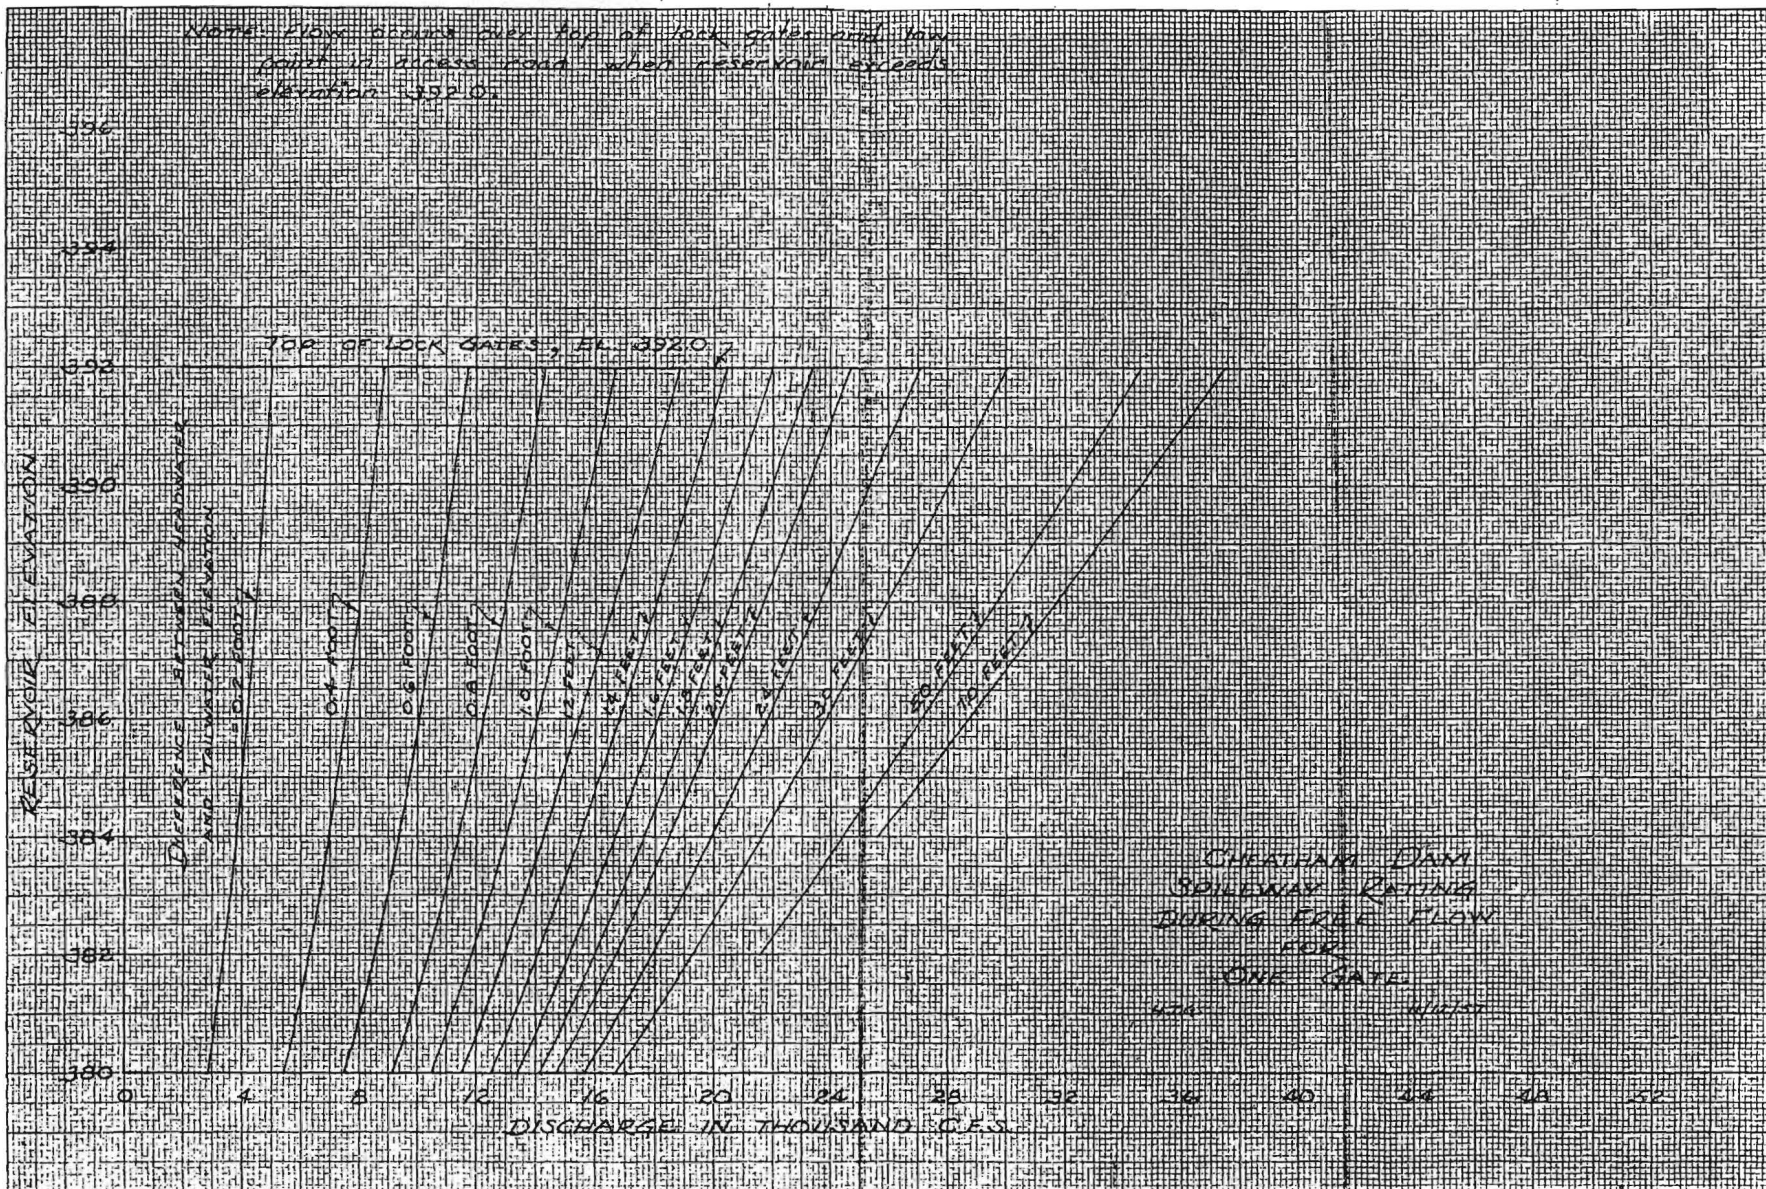 NOTE: Flow occurs over top of lock gates and low
point in access road when reservoir exceeds
elevation 392.0.
396
394
392
390
388
386
384
382
380
RESERVOIR ELEVATION
TOP OF LOCK GATES, EL. 392.0
DIFFERENCE BETWEEN HEADWATER
AND TAILWATER ELEVATION
= 0.2 FOOT
0.4 FOOT
0.6 FOOT
0.8 FOOT
1.0 FOOT
1.2 FEET
1.4 FEET
1.6 FEET
1.8 FEET
2.0 FEET
2.4 FEET
3.0 FEET
5.0 FEET
7.0 FEET
CHEATHAM DAM
SPILLWAY RATING
DURING FREE FLOW
FOR
ONE GATE
0 4 8 12 16 20 24 28 32 36 40 44 48 52
DISCHARGE IN THOUSAND C.F.S.